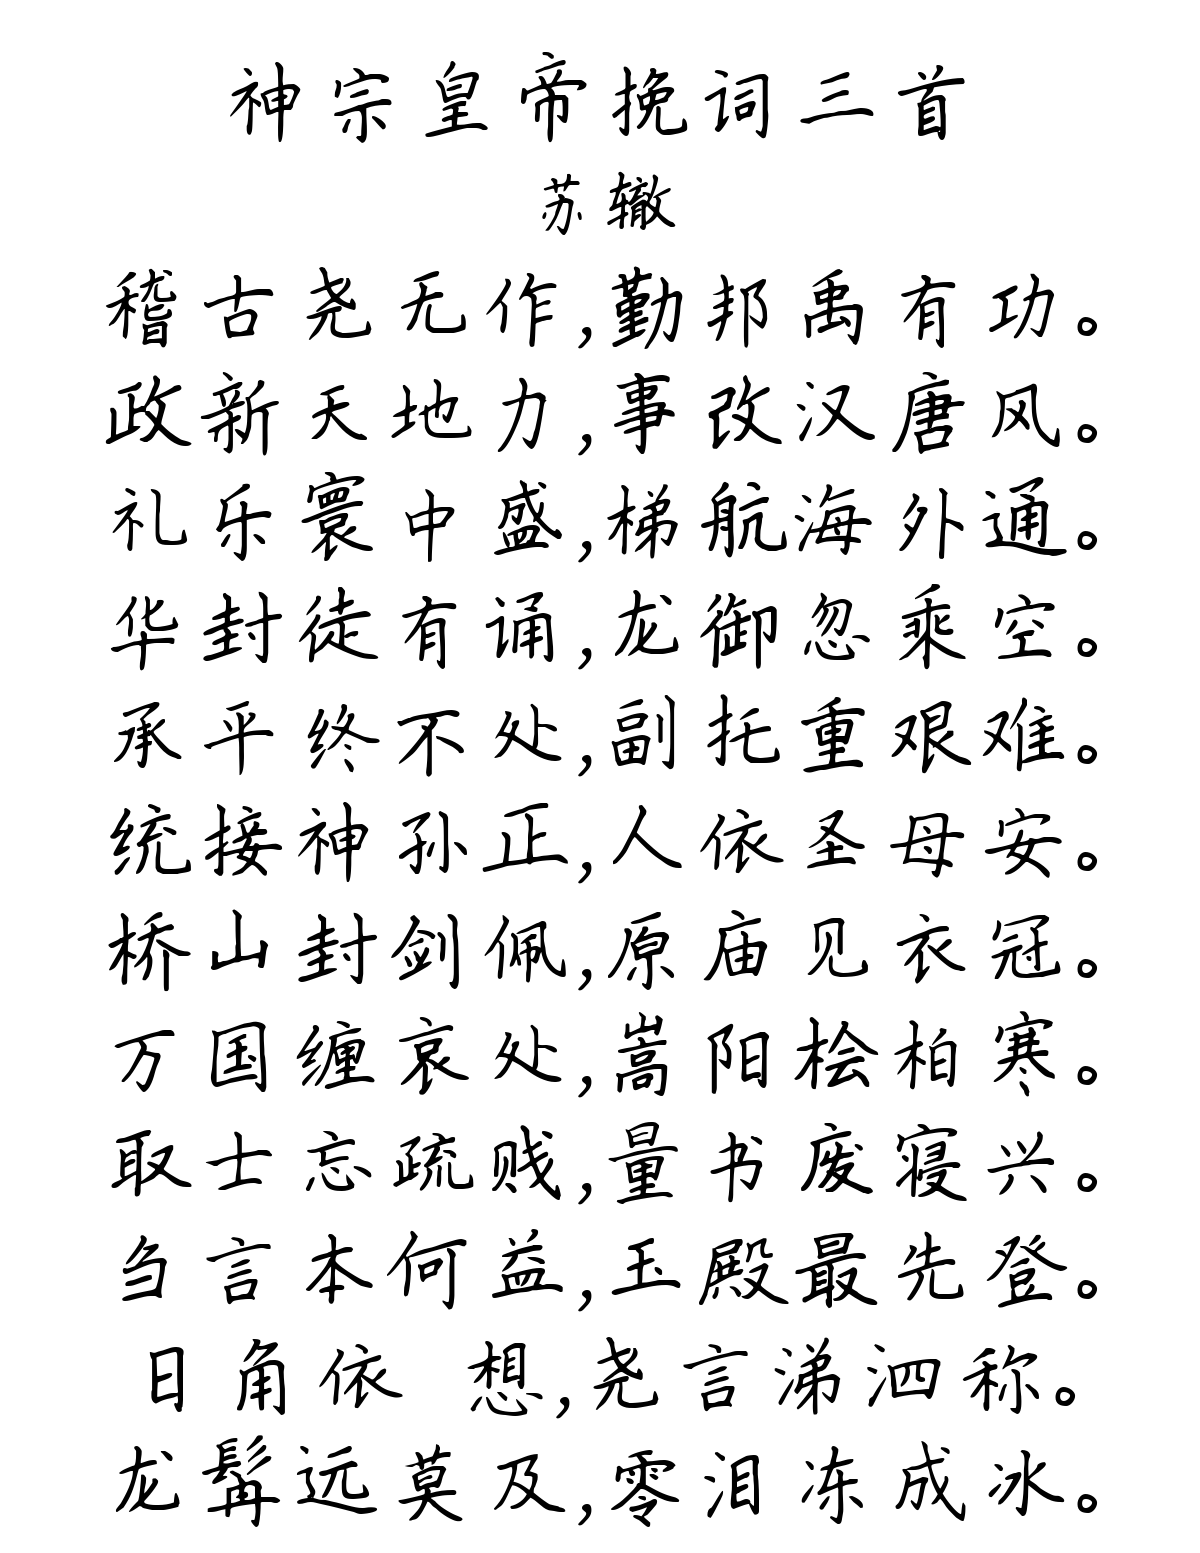 神宗皇帝挽词三首
苏辙
稽古尧无作,勤邦禹有功。
政新天地力,事改汉唐风。
礼乐寰中盛,梯航海外通。
华封徒有诵,龙御忽乘空。
承平终不处,副托重艰难。
统接神孙正,人依圣母安。
桥山封剑佩,原庙见衣冠。
万国缠哀处,嵩阳桧柏寒。
取士忘疏贱,量书废寝兴。
刍言本何益,玉殿最先登。
日角依 想,尧言涕泗称。
龙髯远莫及,零泪冻成冰。